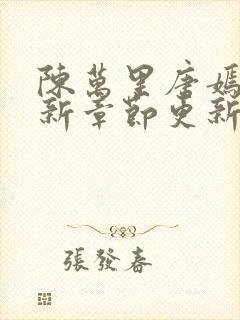 陳萬里唐嫣
新章節更新
張發春